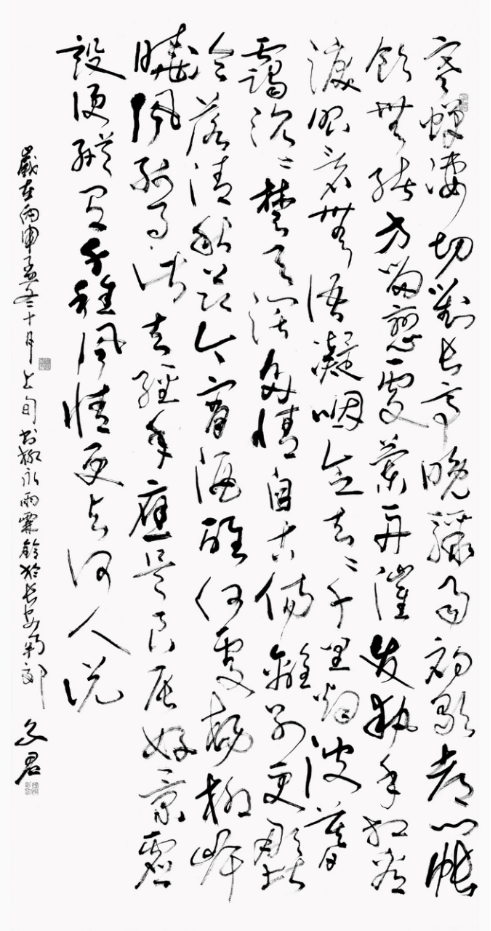 寒蟬淒切對長亭晚驟雨初歇都門帳
飲無緒方留戀處蘭舟催發執手相看
淚眼竟無語凝咽念去々千里煙波暮
靄沉々楚天闊多情自古傷離別更那堪
冷落清秋節今宵酒醒何處楊柳岸
曉風殘月此去經年應是良辰好景虛
設便縱有千種風情更與何人說
歲在丙申孟冬十月上旬書柳永雨霖鈴於長安南郊 文君